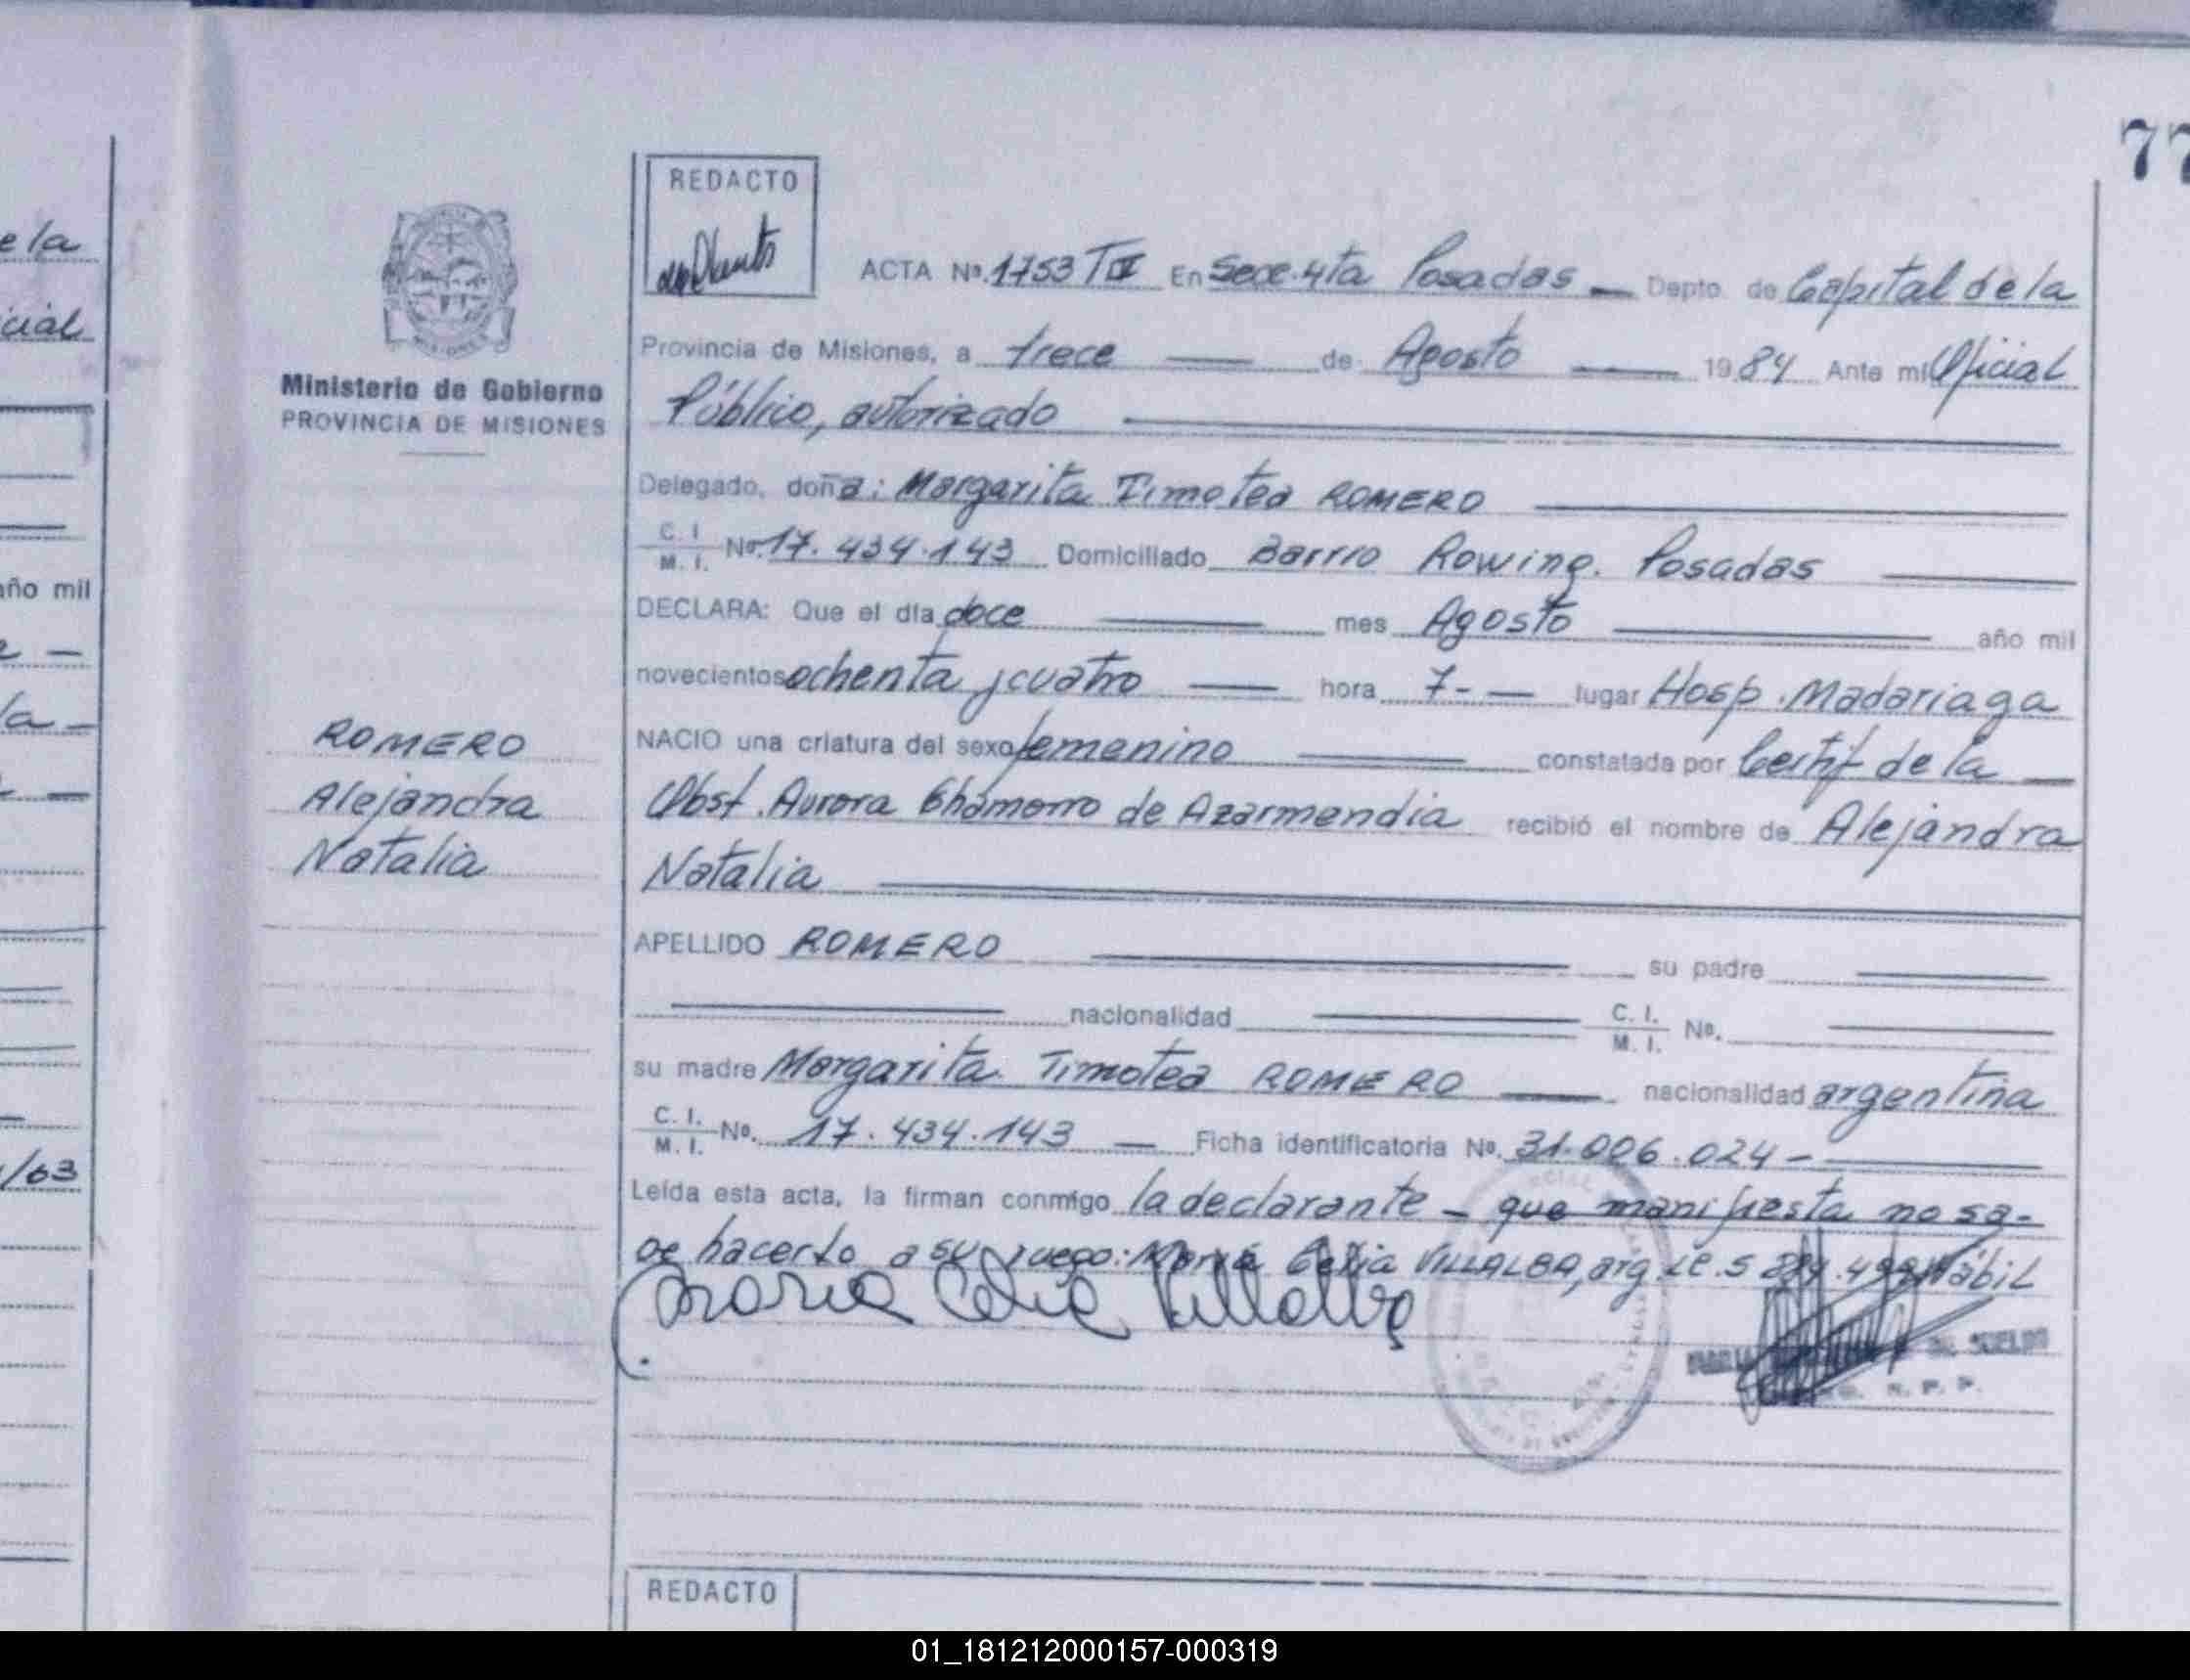 77
REDACTO
ACTA Nº. 1753 TIII En Secc. 4ta Posadas — Depto. de Capital de la
Provincia de Misiones, a trece — de Agosto — 1984 Ante mi Oficial
Público, autorizado
Delegado, doña: Margarita Timotea ROMERO
C. I. M. I. Nº. 17.434.143 Domiciliado Barrio Rowing. Posadas
DECLARA: Que el día doce — mes Agosto — año mil
novecientos ochenta y cuatro — hora 7- — lugar Hosp. Madariaga
NACIO una criatura del sexo femenino — constatada por Certif de la —
Obst. Aurora Chamorro de Azarmendia recibió el nombre de Alejandra
Natalia
APELLIDO ROMERO — su padre —
— nacionalidad — C. I. M. I. Nº. —
su madre Margarita Timotea ROMERO — nacionalidad argentina
C. I. M. I. Nº. 17.434.143 — Ficha identificatoria Nº. 31.006.024 -
Leída esta acta, la firman conmigo la declarante - que manifiesta no sa-
be hacerlo a su ruego: María Celia VILLALBA, arg. LC. 5 hábil
Maria Celia Villalba
DE SUELDO
R. P. P.
REDACTO
Ministerio de Gobierno
PROVINCIA DE MISIONES
ROMERO
Alejandra
Natalia
e la
cial
año mil
la -
/63
01_181212000157-000319